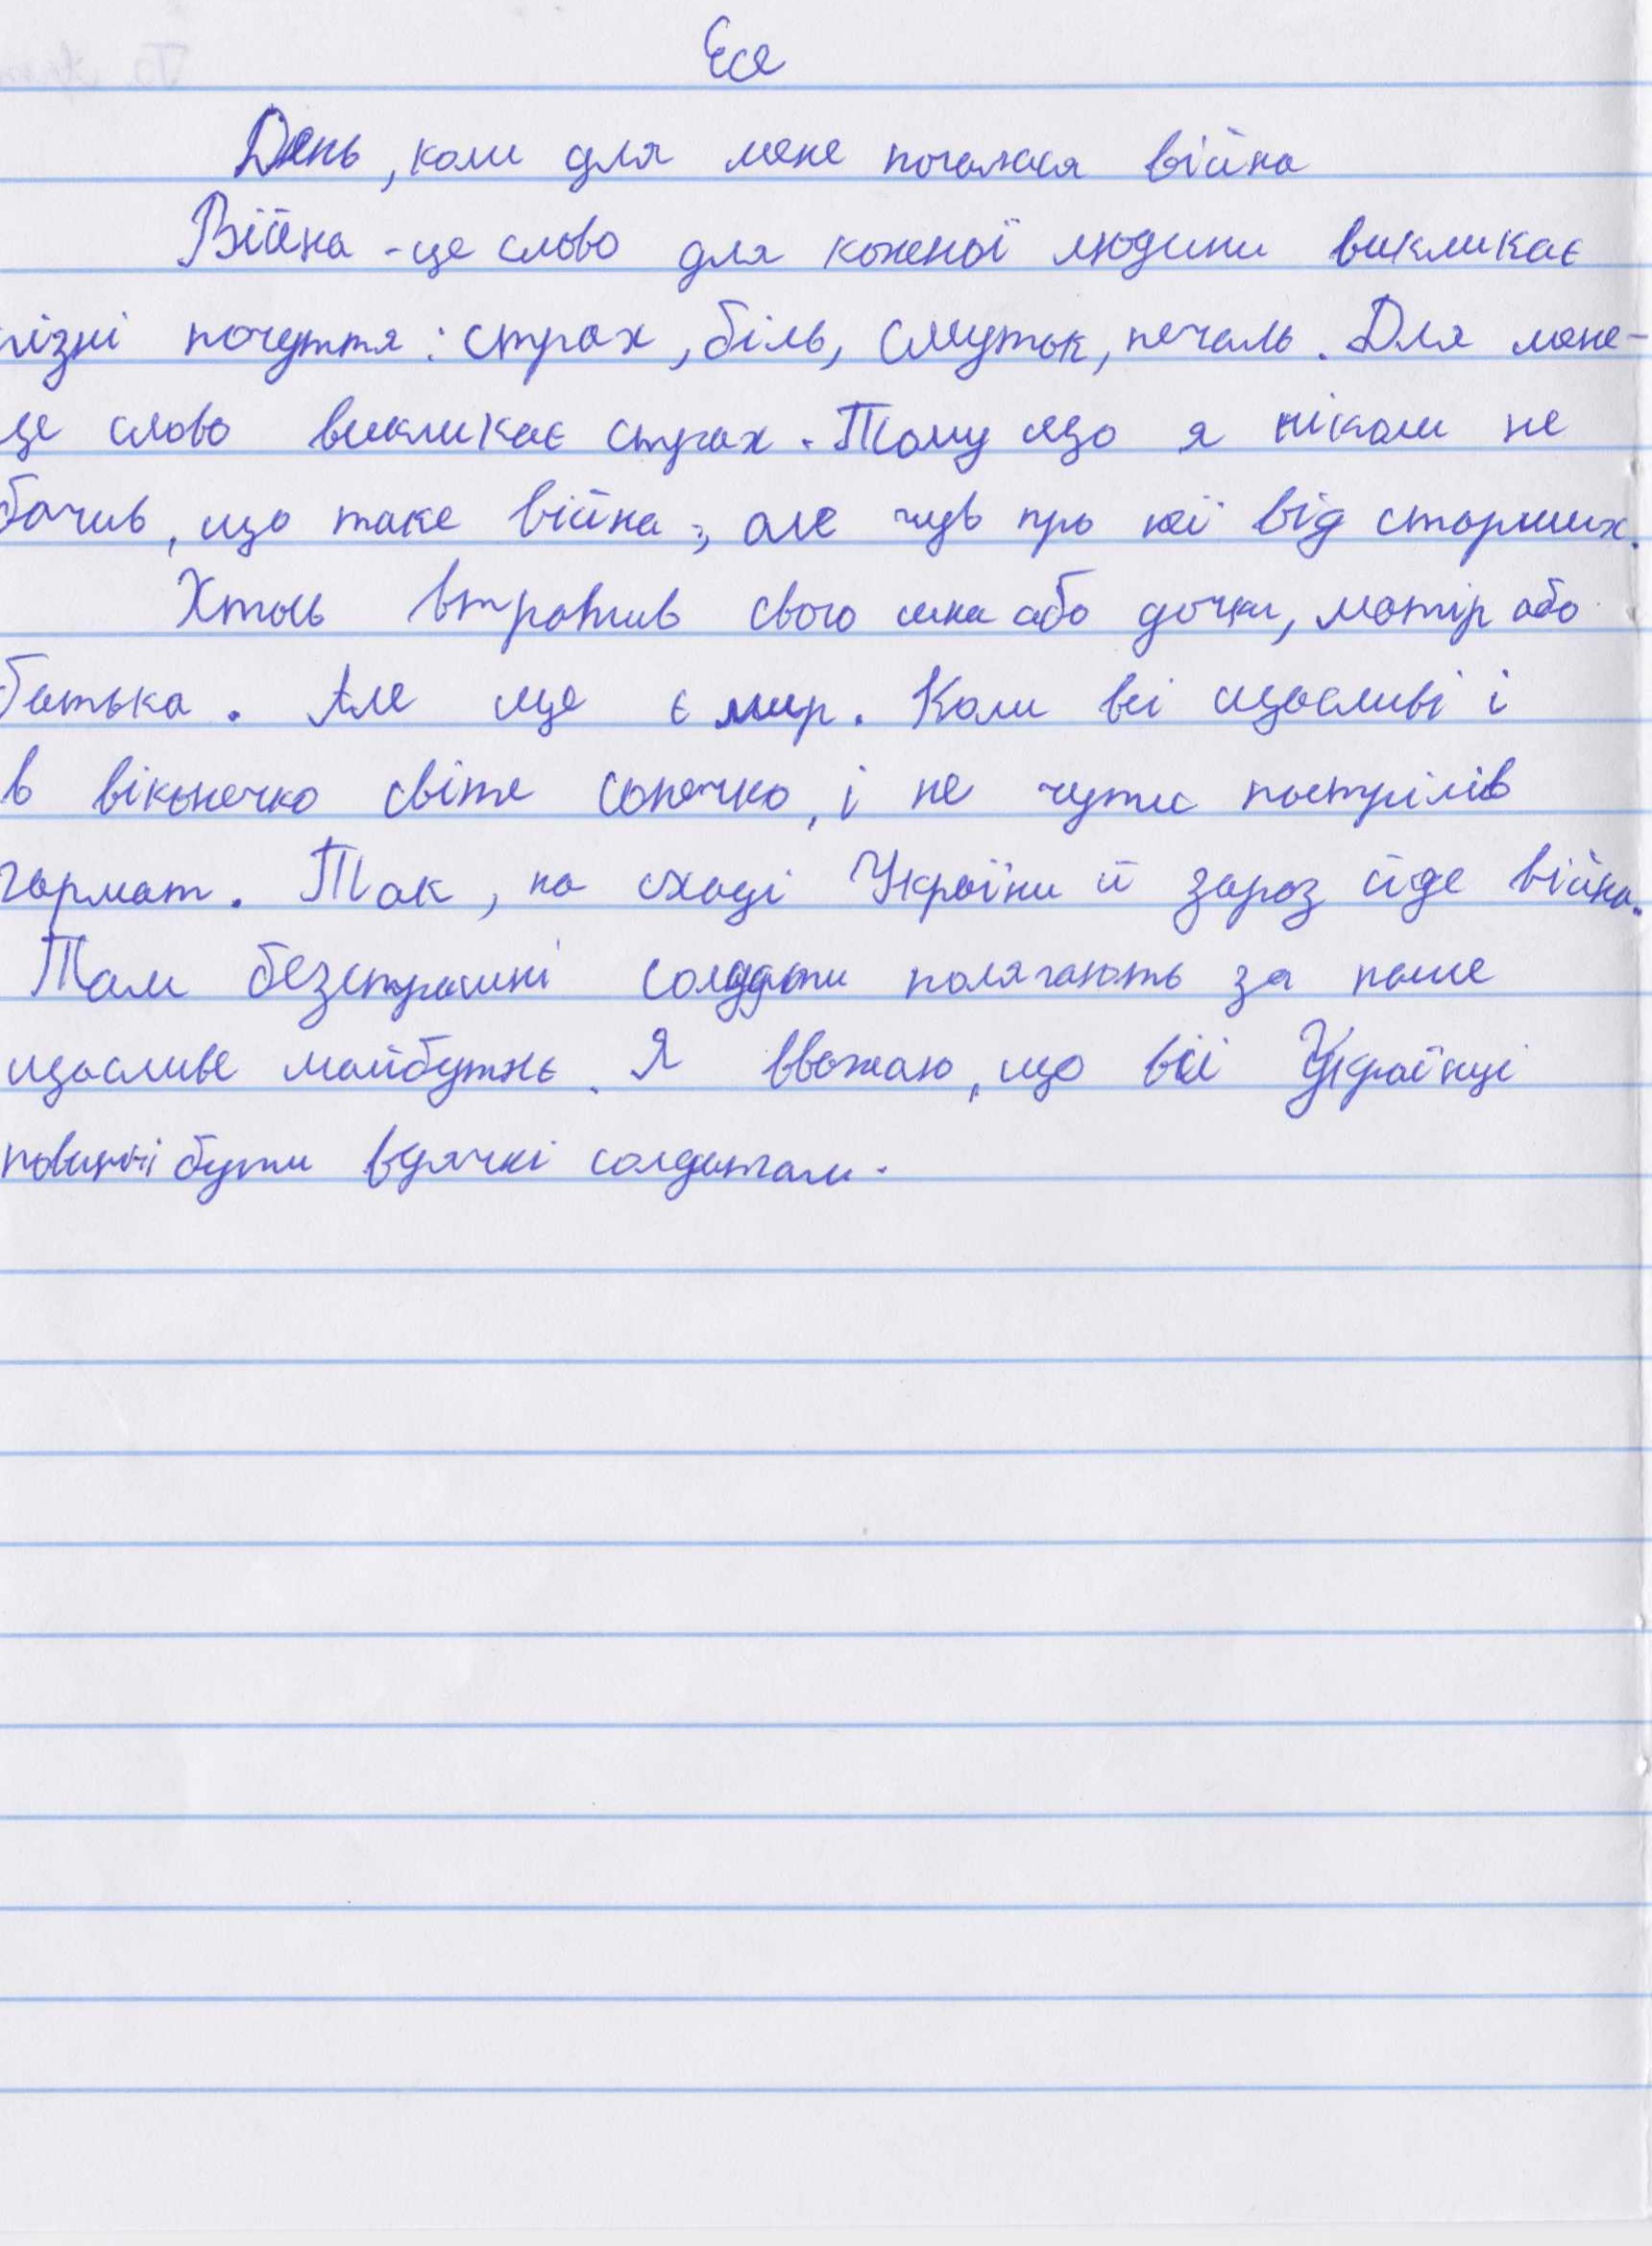 Есе
День, коли для мене почалася війна
Війна - це слово для кожної людини викликає
різні почуття: страх, біль, смуток, печаль. Для мене -
це слово викликає страх. Тому що я ніколи не
бачив, що таке війна, але чув про неї від старших.
Хтось втратив свого сина або дочку, матір або
батька. Але ще є мир. Коли всі щасливі і
в віконечко світе сонечко, і не чути пострілів
гармат. Так, на сході України й зараз йде війна.
Там безстрашні солдати полягають за наше
щасливе майбутнє. Я вважаю, що всі Українці
повинні бути вдячні солдатам.